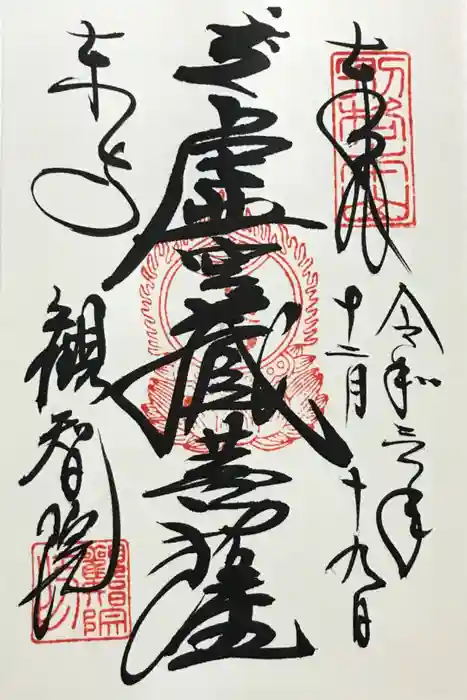 奉拝
令和三年
十二月十九日
虚空蔵菩薩
東寺
観智院